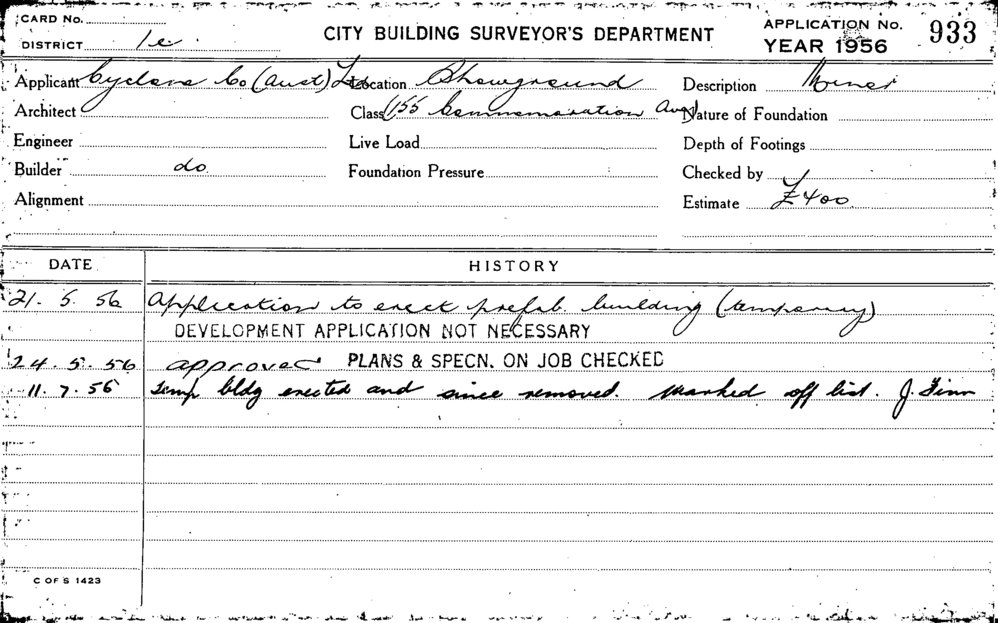 CARD No.
DISTRICT 1c.
CITY BUILDING SURVEYOR'S DEPARTMENT
APPLICATION No. 933
YEAR 1956
Applicant Cyclone Co (Aust) Ltd Location Showground Description Minor
Architect Class (155 Commemoration Ave) Nature of Foundation
Engineer Live Load Depth of Footings
Builder do. Foundation Pressure Checked by
Alignment Estimate £400
DATE HISTORY
21. 5. 56 Application to erect prefab. building (temporary)
DEVELOPMENT APPLICATION NOT NECESSARY
24. 5. 56 approved PLANS & SPECN. ON JOB CHECKED
11. 7. 56 Temp bldg erected and since removed. Marked off list. J. Finn
C OF S 1423